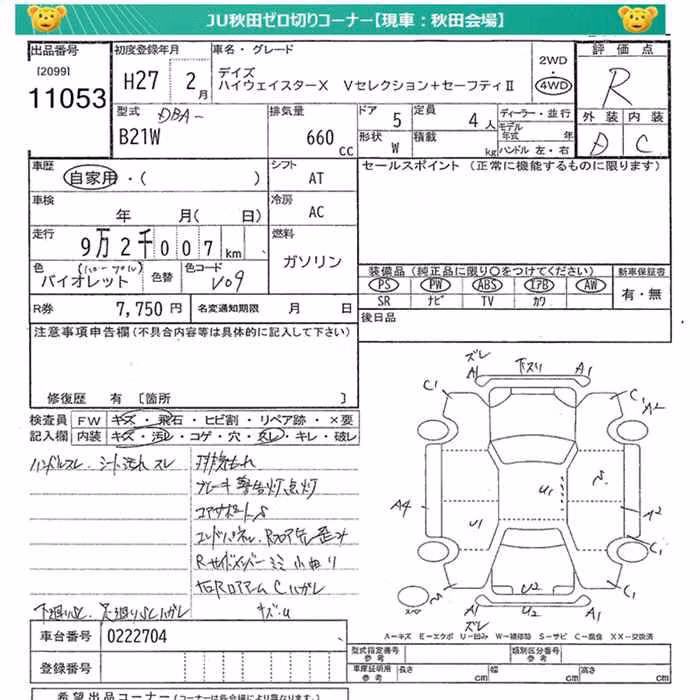 JU秋田ゼロ切りコーナー【現車：秋田会場】
出品番号
[2099]
11053
初度登録年月
H27 2月
車名・グレード
デイズ
ハイウェイスターX Vセレクション+セーフティII
2WD
・
4WD
評価点
R
外装 内装
D C
型式 DBA-
B21W
排気量
660 CC
ドア 5
定員 4人
形状 W
積載 kg
ディーラー・並行
モデル年式 年
ハンドル 左・右
車歴
自家用・( )
シフト AT
セールスポイント (正常に機能するものに限ります)
車検
年 月( 日)
冷房 AC
走行
9万2千007km
燃料
ガソリン
色
バイオレット
色替
色コード
V09
装備品 (純正品に限り〇をつけてください)
PS PW ABS エアB AW
SR ナビ TV カワ
新車保証書
有・無
R券 7,750円
名変通知期限 月 日
後日品
注意事項申告欄(不具合内容等は具体的に記入して下さい)
修復歴 有 [箇所 ]
検査員
記入欄
FW キズ・飛石・ヒビ割・リペア跡・×要
内装 キズ・汚れ・コゲ・穴・スレ・キレ・破レ
ハンドルスレ. シート汚れ スレ
ブレーキ警告灯点灯
コアサポートS
ズレ
A1 下スリ A1
C1 C1 A2
A4 U1 U1 A2
C1 C1
スペ
U2
A1 U2 A1
ズレ
A－キズ E－エクボ U－凹み W－補修跡 S－サビ C－腐食 XX－交換済
車台番号 0222704
登録番号
型式指定番号
参考
類別区分番号
参考
車庫証明用
参考
長さ cm
幅 cm
高さ cm
希望出品コーナー